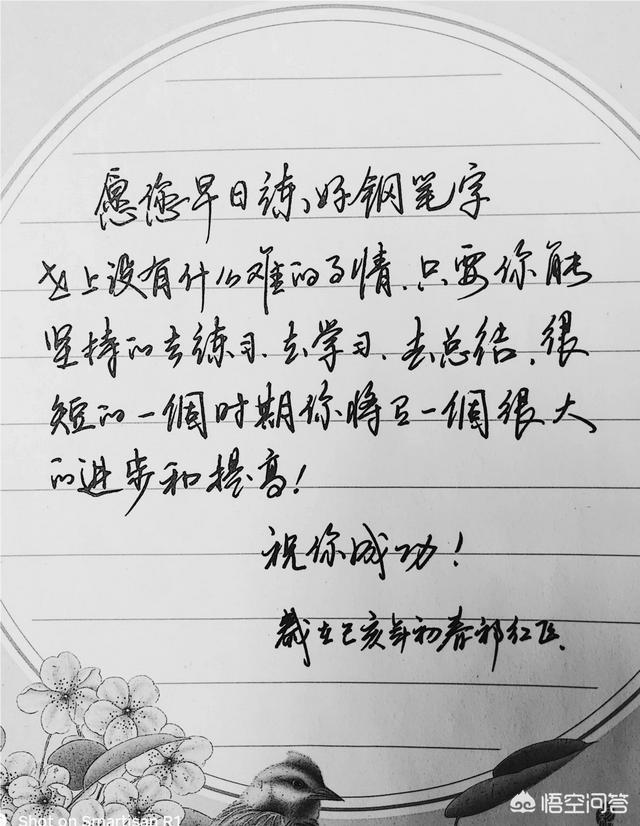 愿您早日练好钢笔字
世上没有什么难的事情,只要你能
坚持的去练习、去学习、去总结,很
短的一個时期你将是一個很大
的进步和提高!
祝你成功!
歲在己亥年初春祁红
Shot on Smartisan R1
悟空问答